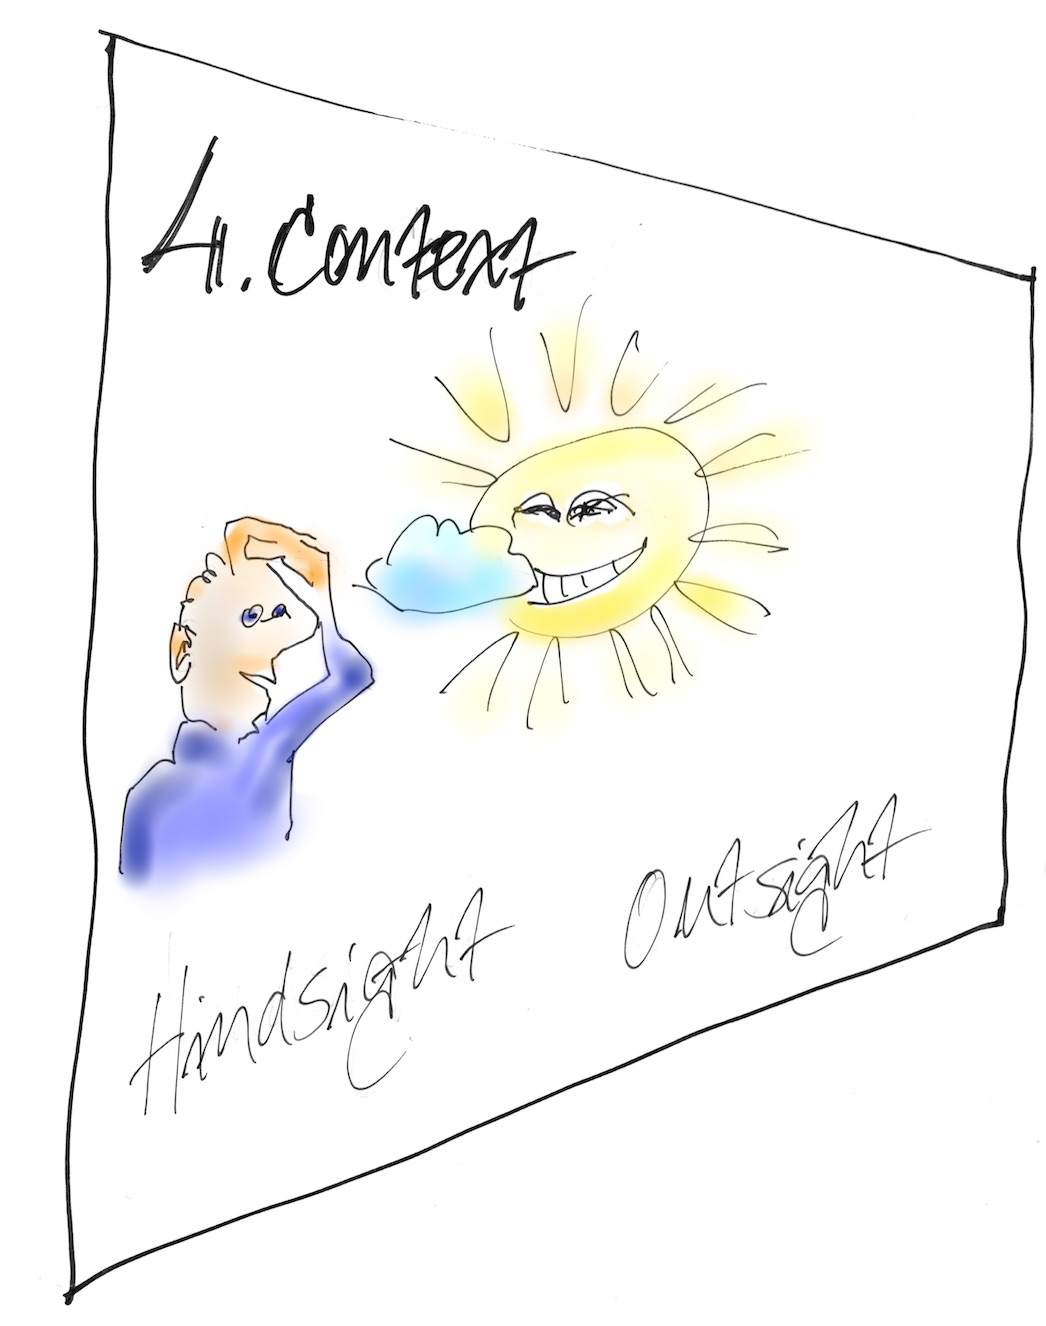 4. Context
Hindsight Outsight